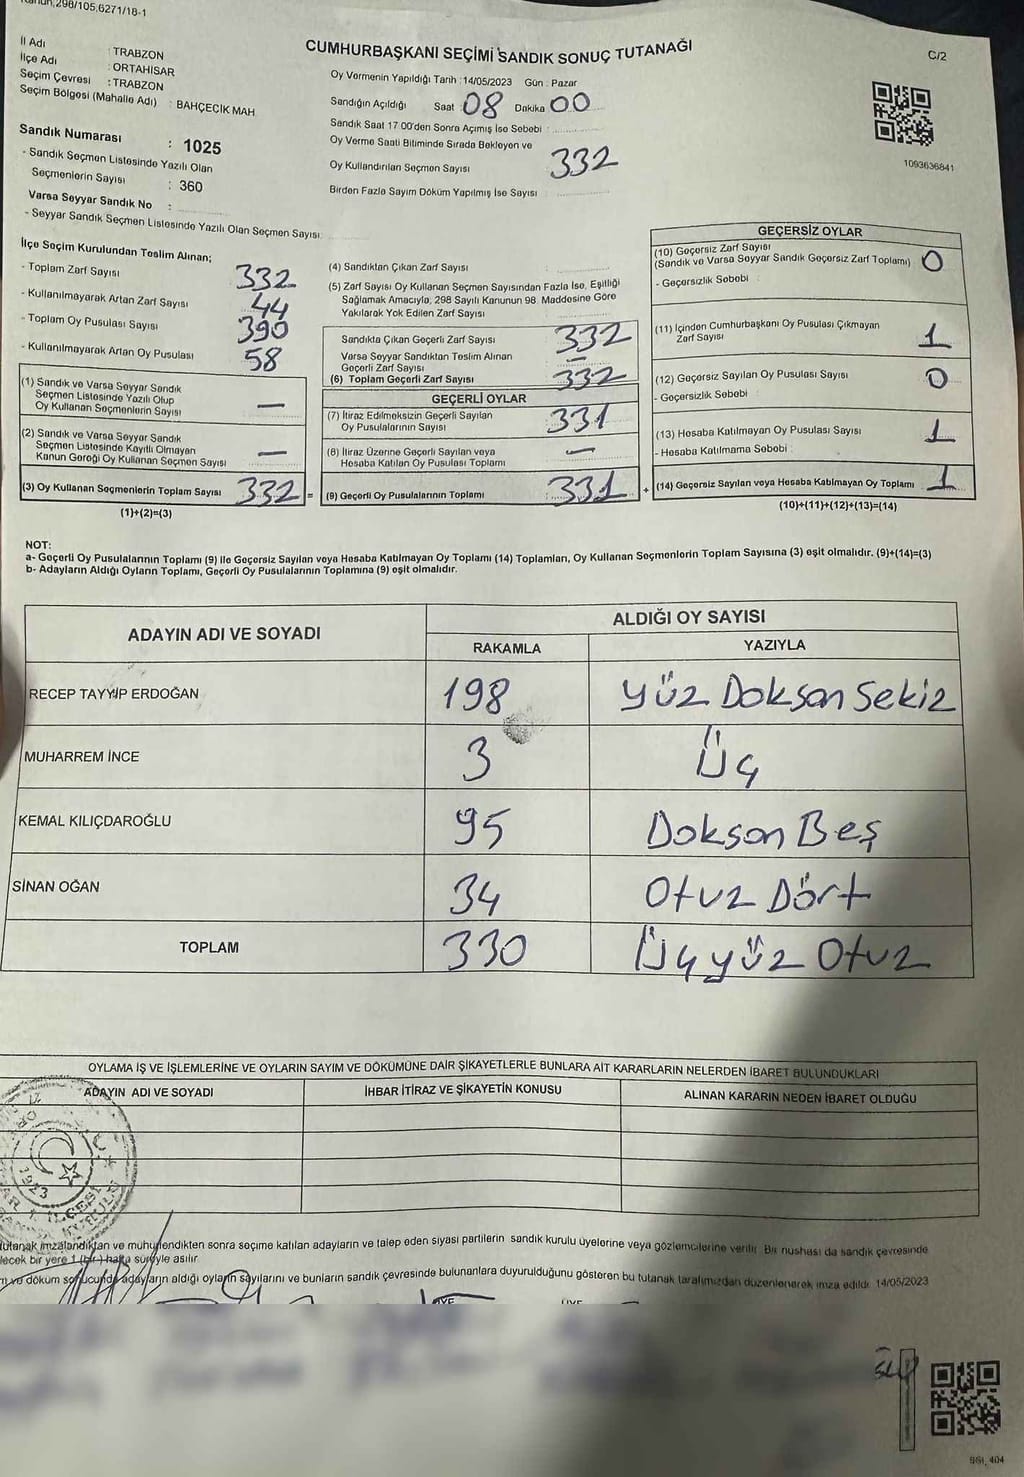 Kanun, 298/105,6271/18-1
CUMHURBAŞKANI SEÇİMİ SANDIK SONUÇ TUTANAĞI
C/2
İl Adı : TRABZON
İlçe Adı : ORTAHİSAR
Seçim Çevresi : TRABZON
Seçim Bölgesi (Mahalle Adı) : BAHÇECİK MAH
Sandık Numarası : 1025
- Sandık Seçmen Listesinde Yazılı Olan
Seçmenlerin Sayısı : 360
Varsa Seyyar Sandık No :
- Seyyar Sandık Seçmen Listesinde Yazılı Olan Seçmen Sayısı:
Oy Vermenin Yapıldığı Tarih : 14/05/2023 Gün : Pazar
Sandığın Açıldığı Saat : 08 Dakika 00
Sandık Saat 17:00'den Sonra Açımış İse Sebebi :
Oy Verme Saati Bitiminde Sırada Bekleyen ve
Oy Kullandırılan Seçmen Sayısı 332
Birden Fazla Sayım Döküm Yapılmış İse Sayısı
1093636841
İlçe Seçim Kurulundan Teslim Alınan;
- Toplam Zarf Sayısı 332
- Kullanılmayarak Artan Zarf Sayısı 44
- Toplam Oy Pusulası Sayısı 390
- Kullanılmayarak Artan Oy Pusulası 58
(1) Sandık ve Varsa Seyyar Sandık
Seçmen Listesinde Yazılı Olup
Oy Kullanan Seçmenlerin Sayısı —
(2) Sandık ve Varsa Seyyar Sandık
Seçmen Listesinde Kayıtlı Olmayan
Kanun Gereği Oy Kullanan Seçmen Sayısı —
(3) Oy Kullanan Seçmenlerin Toplam Sayısı 332 =
(1)+(2)=(3)
(4) Sandıktan Çıkan Zarf Sayısı :
(5) Zarf Sayısı Oy Kullanan Seçmen Sayısından Fazla İse, Eşitliği
Sağlamak Amacıyla, 298 Sayılı Kanunun 98. Maddesine Göre
Yakılarak Yok Edilen Zarf Sayısı :
Sandıkta Çıkan Geçerli Zarf Sayısı 332
Varsa Seyyar Sandıktan Teslim Alınan
Geçerli Zarf Sayısı —
(6) Toplam Geçerli Zarf Sayısı 332
GEÇERLİ OYLAR
(7) İtiraz Edilmeksizin Geçerli Sayılan
Oy Pusulalarının Sayısı 331
(8) İtiraz Üzerine Geçerli Sayılan veya
Hesaba Katılan Oy Pusulası Toplamı —
(9) Geçerli Oy Pusulalarının Toplamı 331 +
GEÇERSİZ OYLAR
(10) Geçersiz Zarf Sayısı
(Sandık ve Varsa Seyyar Sandık Geçersiz Zarf Toplamı) 0
- Geçersizlik Sebebi :
(11) İçinden Cumhurbaşkanı Oy Pusulası Çıkmayan
Zarf Sayısı 1
(12) Geçersiz Sayılan Oy Pusulası Sayısı 0
- Geçersizlik Sebebi :
(13) Hesaba Katılmayan Oy Pusulası Sayısı 1
- Hesaba Katılmama Sebebi :
(14) Geçersiz Sayılan veya Hesaba Katılmayan Oy Toplamı 1
(10)+(11)+(12)+(13)=(14)
NOT:
a- Geçerli Oy Pusulalarının Toplamı (9) ile Geçersiz Sayılan veya Hesaba Katılmayan Oy Toplamı (14) Toplamları, Oy Kullanan Seçmenlerin Toplam Sayısına (3) eşit olmalıdır. (9)+(14)=(3)
b- Adayların Aldığı Oyların Toplamı, Geçerli Oy Pusulalarının Toplamına (9) eşit olmalıdır.
ADAYIN ADI VE SOYADI
ALDIĞI OY SAYISI
RAKAMLA YAZIYLA
RECEP TAYYİP ERDOĞAN 198 Yüz Doksan Sekiz
MUHARREM İNCE 3 Üç
KEMAL KILIÇDAROĞLU 95 Doksan Beş
SİNAN OĞAN 34 Otuz Dört
TOPLAM 330 Üçyüz Otuz
OYLAMA İŞ VE İŞLEMLERİNE VE OYLARIN SAYIM VE DÖKÜMÜNE DAİR ŞİKAYETLERLE BUNLARA AİT KARARLARIN NELERDEN İBARET BULUNDUKLARI
ADAYIN ADI VE SOYADI İHBAR İTİRAZ VE ŞİKAYETİN KONUSU ALINAN KARARIN NEDEN İBARET OLDUĞU
1923
tutanak imzalandıktan ve mühürlendikten sonra seçime katılan adayların ve talep eden siyasi partilerin sandık kurulu üyelerine veya gözlemcilerine verilir. Bir nushesi da sandık çevresinde
lecek bir yere 1 (bir) hafta süreyle asılır
m ve döküm sonucunda adayların aldığı oyların sayılarını ve bunların sandık çevresinde bulunanlara duyurulduğunu gösteren bu tutanak tarafımızdan düzenlenerek imza edildi 14/05/2023
ÜYE ÜYE